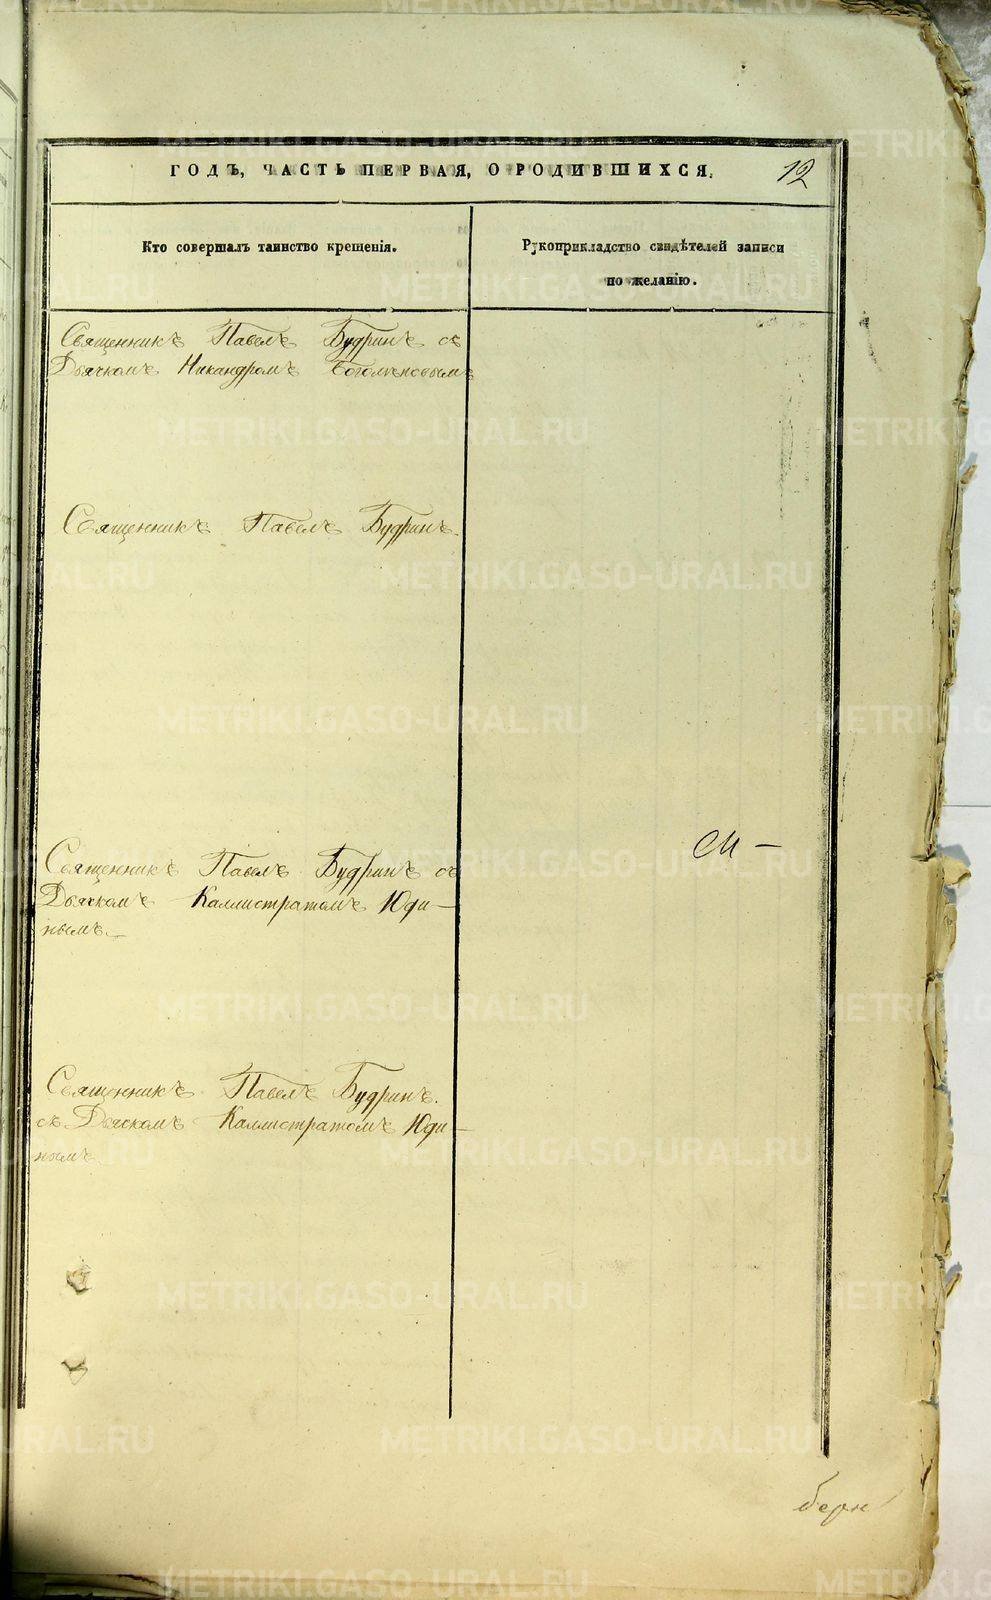 ГОДЪ, ЧАСТЬ ПЕРВАЯ, О РОДИВШИХСЯ.
12
Кто совершалъ таинство крещенія.
Рукоприкладство свидѣтелей записи
по желанію.
Священникъ Павелъ Будринъ съ
Дьячкомъ Никандромъ
Священникъ Павелъ Будринъ.
Священникъ Павелъ Будринъ съ
Дьячкомъ Каллистратомъ Юди-
нымъ.
Священникъ Павелъ Будринъ.
съ Дьячкомъ Каллистратомъ Юди-
нымъ
METRIKI.GASO-URAL.RU